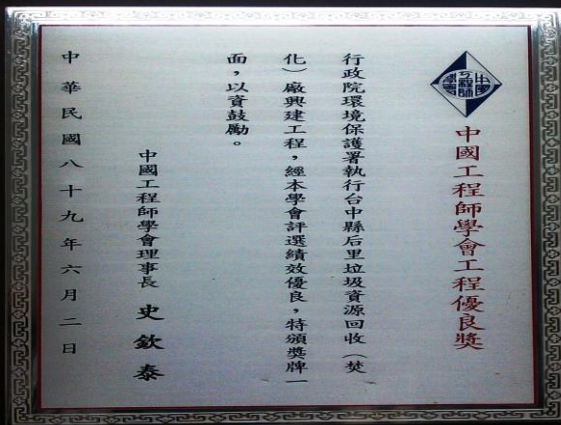 中國工程師學會工程優良獎
行政院環境保護署執行台中縣后里垃圾資源回收（焚
化）廠興建工程，經本學會評選績效優良，特頒獎牌一
面，以資鼓勵。
中國工程師學會理事長 史欽泰
中華民國八十九年六月二日